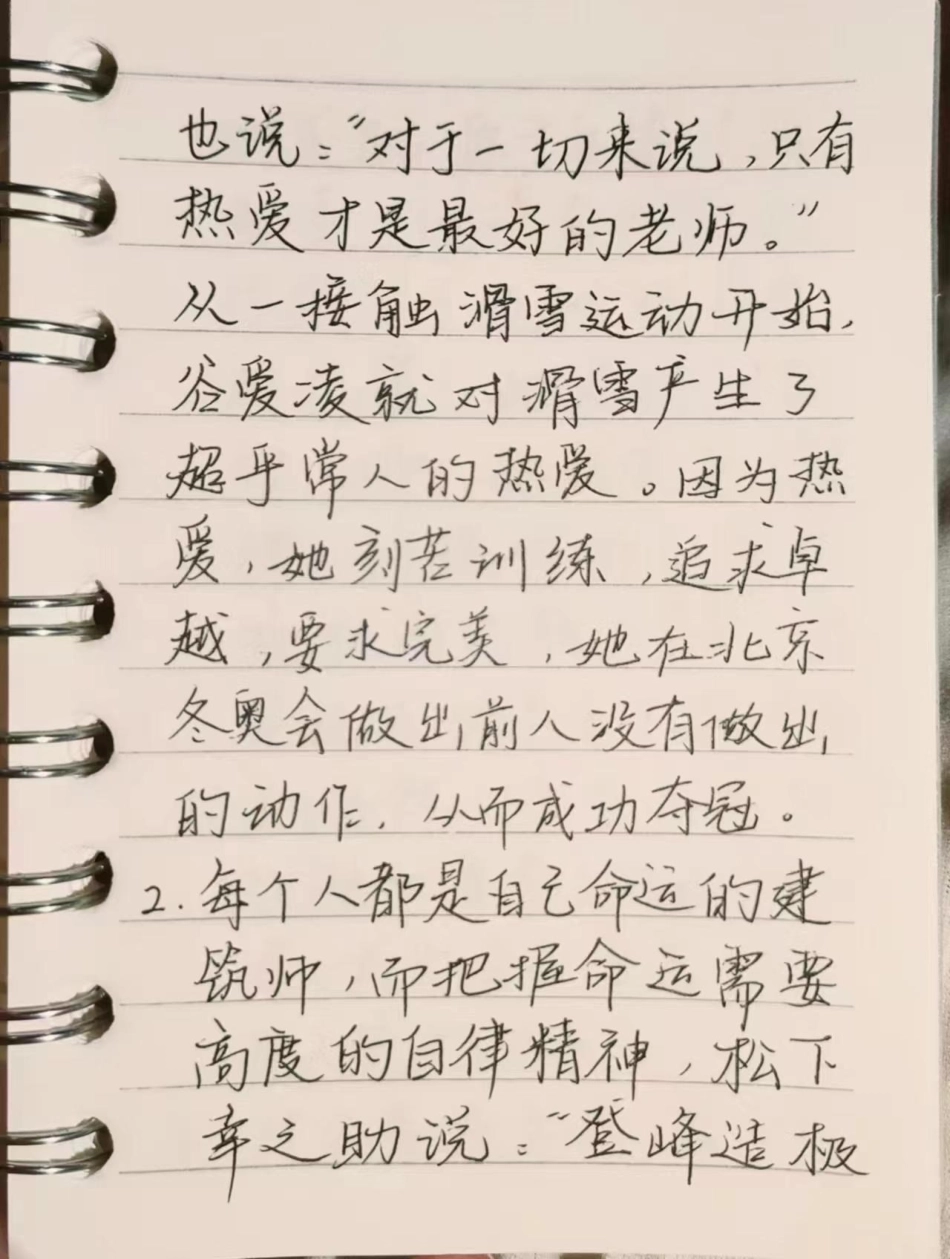 也说：“对于一切来说，只有
热爱才是最好的老师。”
从一接触滑雪运动开始，
谷爱凌就对滑雪产生了
超乎常人的热爱。因为热
爱，她刻苦训练，追求卓
越，要求完美，她在北京
冬奥会做出前人没有做出
的动作，从而成功夺冠。
2.每个人都是自己命运的建
筑师，而把握命运需要
高度的自律精神，松下
幸之助说：“登峰造极